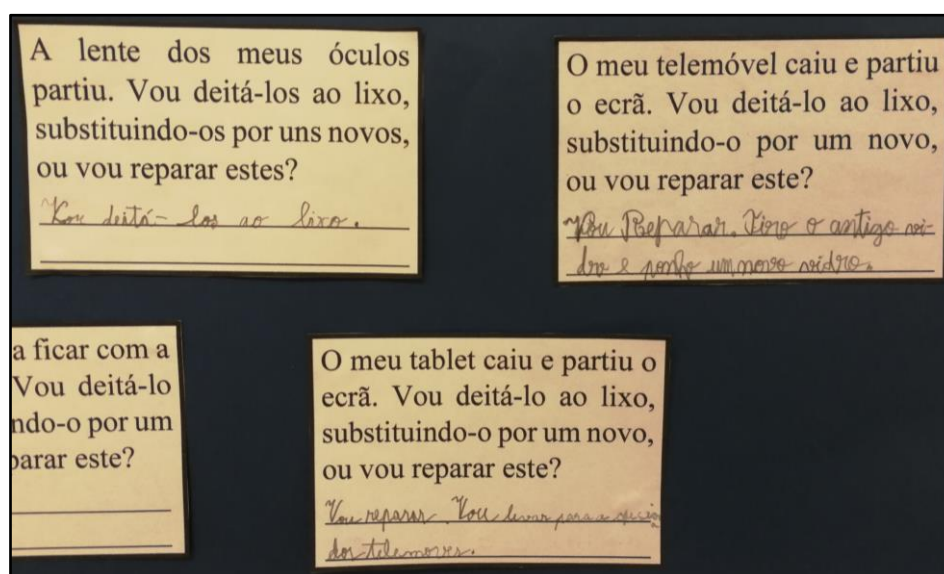 A lente dos meus óculos
partiu. Vou deitá-los ao lixo,
substituindo-os por uns novos,
ou vou reparar estes?
Vou deitá-los ao lixo.
O meu telemóvel caiu e partiu
o ecrã. Vou deitá-lo ao lixo,
substituindo-o por um novo,
ou vou reparar este?
Vou Reparar. Tiro o antigo vi-
dro e ponho um novo vidro.
a ficar com a
Vou deitá-lo
ndo-o por um
parar este?
O meu tablet caiu e partiu o
ecrã. Vou deitá-lo ao lixo,
substituindo-o por um novo,
ou vou reparar este?
Vou reparar. Vou levar para a
dos telemoveis.